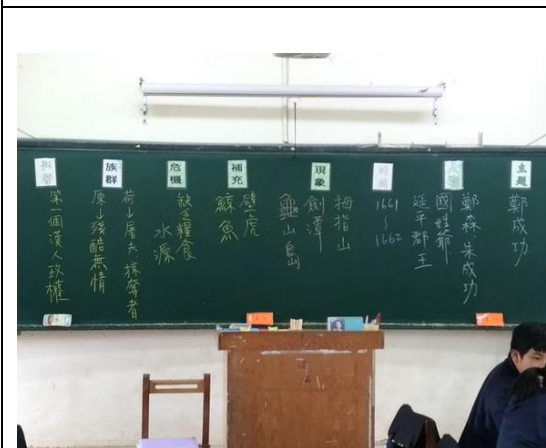 主題
鄭成功
鄭森、朱成功
國姓爺
延平郡王
時間
1661
~
1662
現象
拇指山
劍潭
龜山島
補充
壁虎
鯨魚
危機
缺乏糧食
水源
族群
荷→屠夫掠奪者
原→殘酷無情
影響
第一個漢人政權